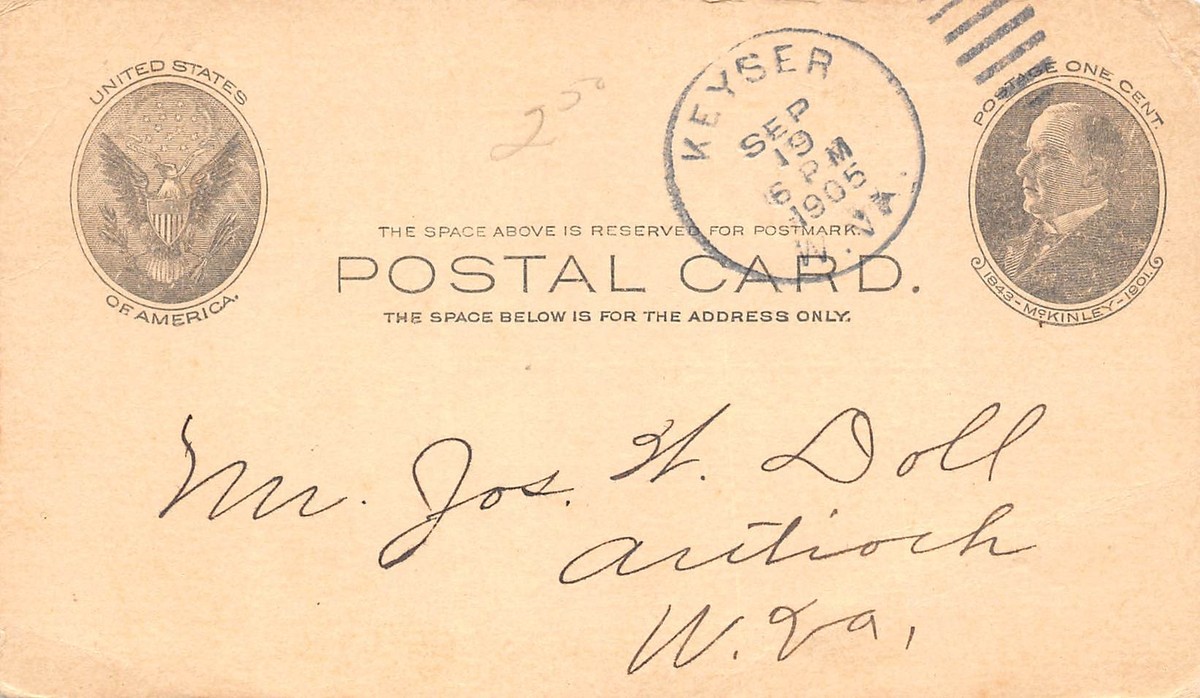 UNITED STATES
OF AMERICA.
2 50
KEYSER
SEP
19
6 PM
1905
W. VA.
POSTAGE ONE CENT.
1843-McKINLEY-1901.
THE SPACE ABOVE IS RESERVED FOR POSTMARK.
POSTAL CARD.
THE SPACE BELOW IS FOR THE ADDRESS ONLY.
Mr. Jos. W. Doll
Antioch
W. Va,